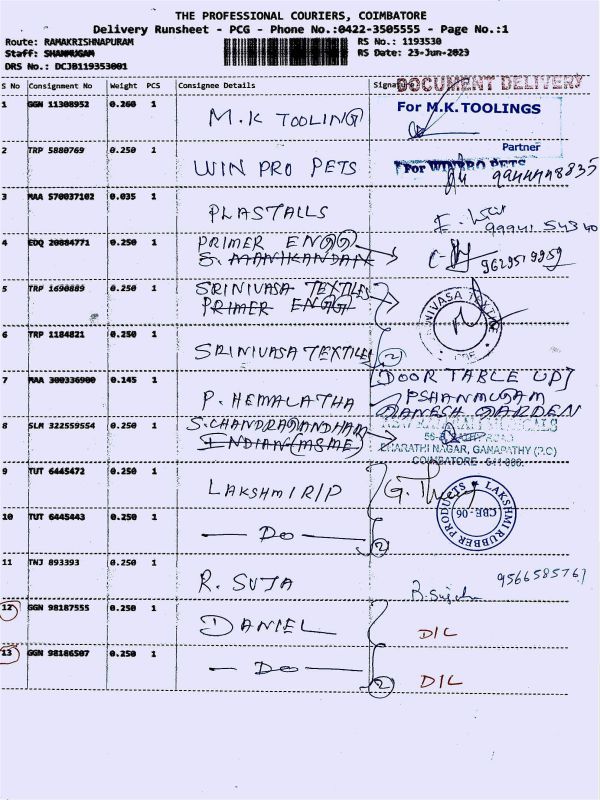 THE PROFESSIONAL COURIERS, COIMBATORE
Delivery Runsheet - PCG - Phone No.:0422-3505555 - Page No.:1
Route: RAMAKRISHNAPURAM RS No.: 1193530
Staff: SHANMUGAM RS Date: 23-Jun-2023
DRS No.: DCJB119353001
S No Consignment No Weight PCS Consignee Details Signa
DOCUMENT DELIVERY
1 GGN 11308952 0.260 1 M.K TOOLING For M.K.TOOLINGS
Partner
2 TRP 5880769 0.250 1 WIN PRO PETS For WINPRO PETS
3 MAA 570037102 0.035 1 PLASTALLS
4 EDQ 20884771 0.250 1 PRIMER ENGG
S. MANIKANDAN 9629519959
5 TRP 1690889 0.250 1 SRINIVASA TEXTILES
PRIMER ENGG
6 TRP 1184821 0.250 1 SRINIVASA TEXTILES 2
7 MAA 300336900 0.145 1 P. HEMALATHA [DOOR TABLE UP]
PSHANMUGAM
GANESH GARDEN
8 SLM 322559554 0.250 1 S.CHANDRAGANDHAM
INDIAN (MSME)
BHARATHI NAGAR, GANAPATHY (P.O)
COIMBATORE - 641 006.
9 TUT 6445472 0.250 1 LAKSHMI R/P
LAKSHMI RUBBER PRODUCTS
CBE-06
10 TUT 6445443 0.250 1 — Do — 2
11 TNJ 893393 0.250 1 R. SUJA 9566585767
12 GGN 98187555 0.250 1 DANIEL D/L
13 GGN 98186507 0.250 1 — Do — 2 D/L